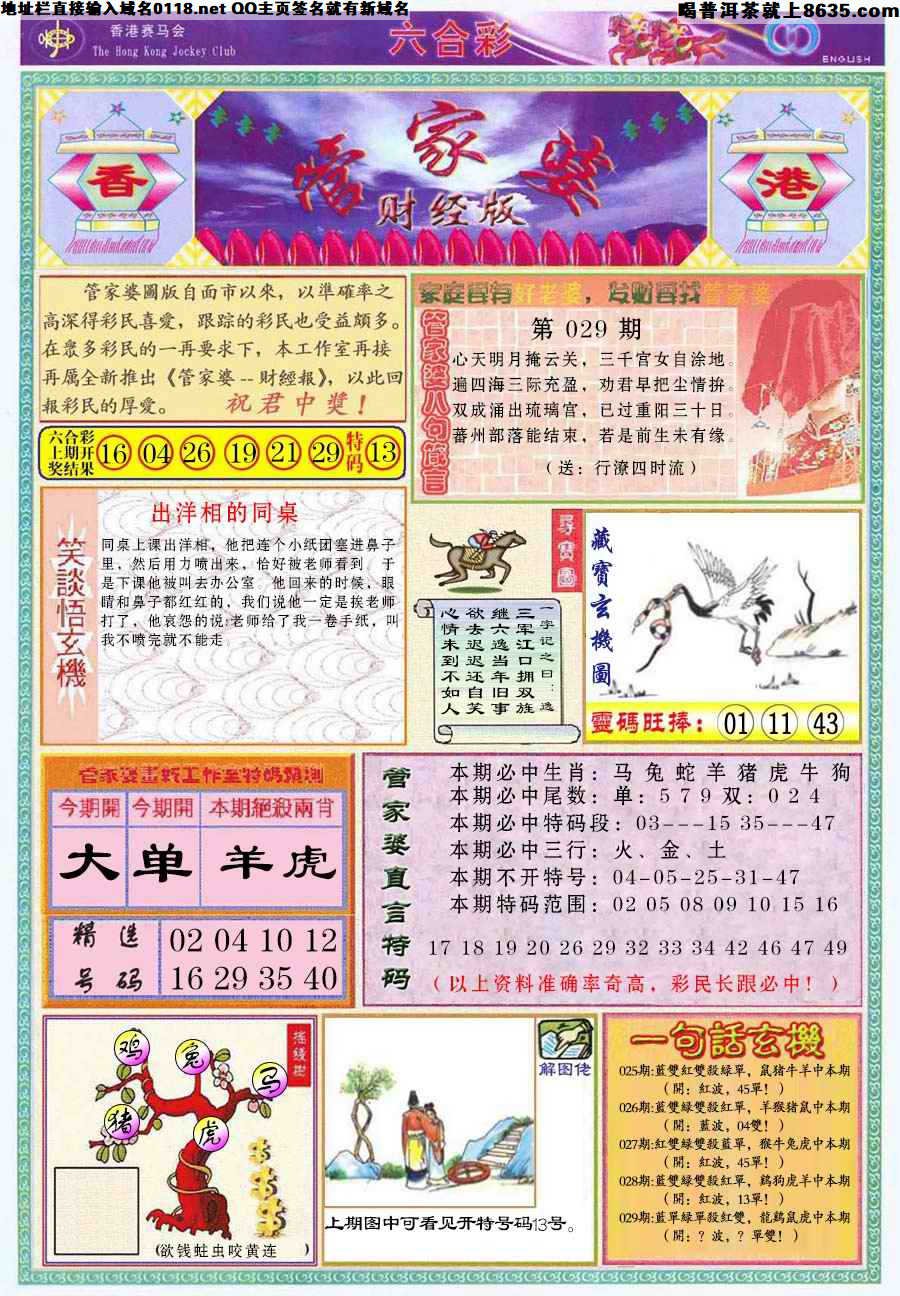 地址栏直接输入域名0118.net QQ主页签名就有新域名
喝普洱茶就上8635.com
香港赛马会
The Hong Kong Jockey Club
六合彩
ENGLISH
香
管家婆
财经版
港
管家婆圖版自面市以來，以準確率之
高深得彩民喜愛，跟踪的彩民也受益頗多。
在眾多彩民的一再要求下，本工作室再接
再厲全新推出《管家婆--財經報》，以此回
報彩民的厚愛。 祝君中獎！
六合彩
上期开
奖结果
16 04 26 19 21 29 特码 13
家庭要有好老婆，发财要找管家婆
管家婆八句箴言
第 029 期
心天明月掩云关，三千宫女自涂地。
遍四海三际充盈，劝君早把尘情拚。
双成涌出琉璃宫，已过重阳三十日。
蕃州部落能结束，若是前生未有缘。
（送：行潦四时流）
笑談悟玄機
出洋相的同桌
同桌上课出洋相，他把连个小纸团塞进鼻子
里，然后用力喷出来，恰好被老师看到，于
是下课他被叫去办公室，他回来的时候，眼
睛和鼻子都红红的，我们说他一定是挨老师
打了，他哀怨的说:老师给了我一卷手纸，叫
我不喷完就不能走
尋寶圖
一字记之曰：选
三军江口拥双旌
继六逸当年旧事
欲去迟迟还自笑
心情未到不如人
藏寶玄機圖
靈碼旺捧：01 11 43
管家婆畫斩工作室特碼預測
今期開 今期開 本期絕殺兩肖
大 单 羊虎
精选
号码
02 04 10 12
16 29 35 40
管家婆直言特码
本期必中生肖：马 兔 蛇 羊 猪 虎 牛 狗
本期必中尾数：单：5 7 9 双：0 2 4
本期必中特码段：03---15 35---47
本期必中三行：火、金、土
本期不开特号：04-05-25-31-47
本期特码范围：02 05 08 09 10 15 16
17 18 19 20 26 29 32 33 34 42 46 47 49
（以上资料准确率奇高，彩民长跟必中！）
搖錢樹
鸡
兔
马
猪
虎
(欲钱蛀虫咬黄连 )
解图佬
上期图中可看见开特号码13号。
一句話玄機
025期:藍雙紅雙殺綠單，鼠猪牛羊中本期
（開：紅波，45單！）
026期:藍雙綠雙殺紅單，羊猴猪鼠中本期
（開：藍波，04雙！）
027期:紅雙綠雙殺藍單，猴牛兔虎中本期
（開：紅波，45單！）
028期:藍雙綠雙殺紅單，鷄狗虎羊中本期
（開：紅波，13單！）
029期:藍單綠單殺紅雙，龍鷄鼠虎中本期
（開：？波，？單雙！）